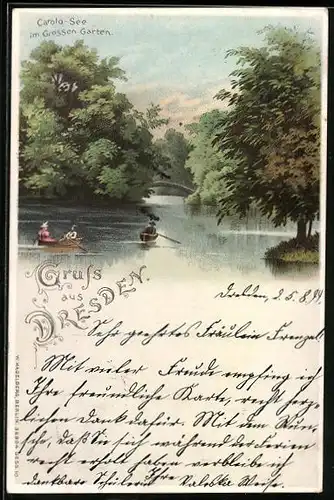 Carola-See
im Grossen Garten.
Gruss
aus
DRESDEN.
Dresden, d. 5. 8. 99.
Sehr geehrtes Fräulein Frenzel!
Mit vieler Freude empfing ich
Ihre freundliche Karte, recht herz-
lichen Dank dafür. Mit dem Wun-
sche, daß Sie sich während der Ferien
recht erholt haben verbleibe ich
Ihre
dankbare Schülerin Valeska
W. HAGELBERG, BERLIN